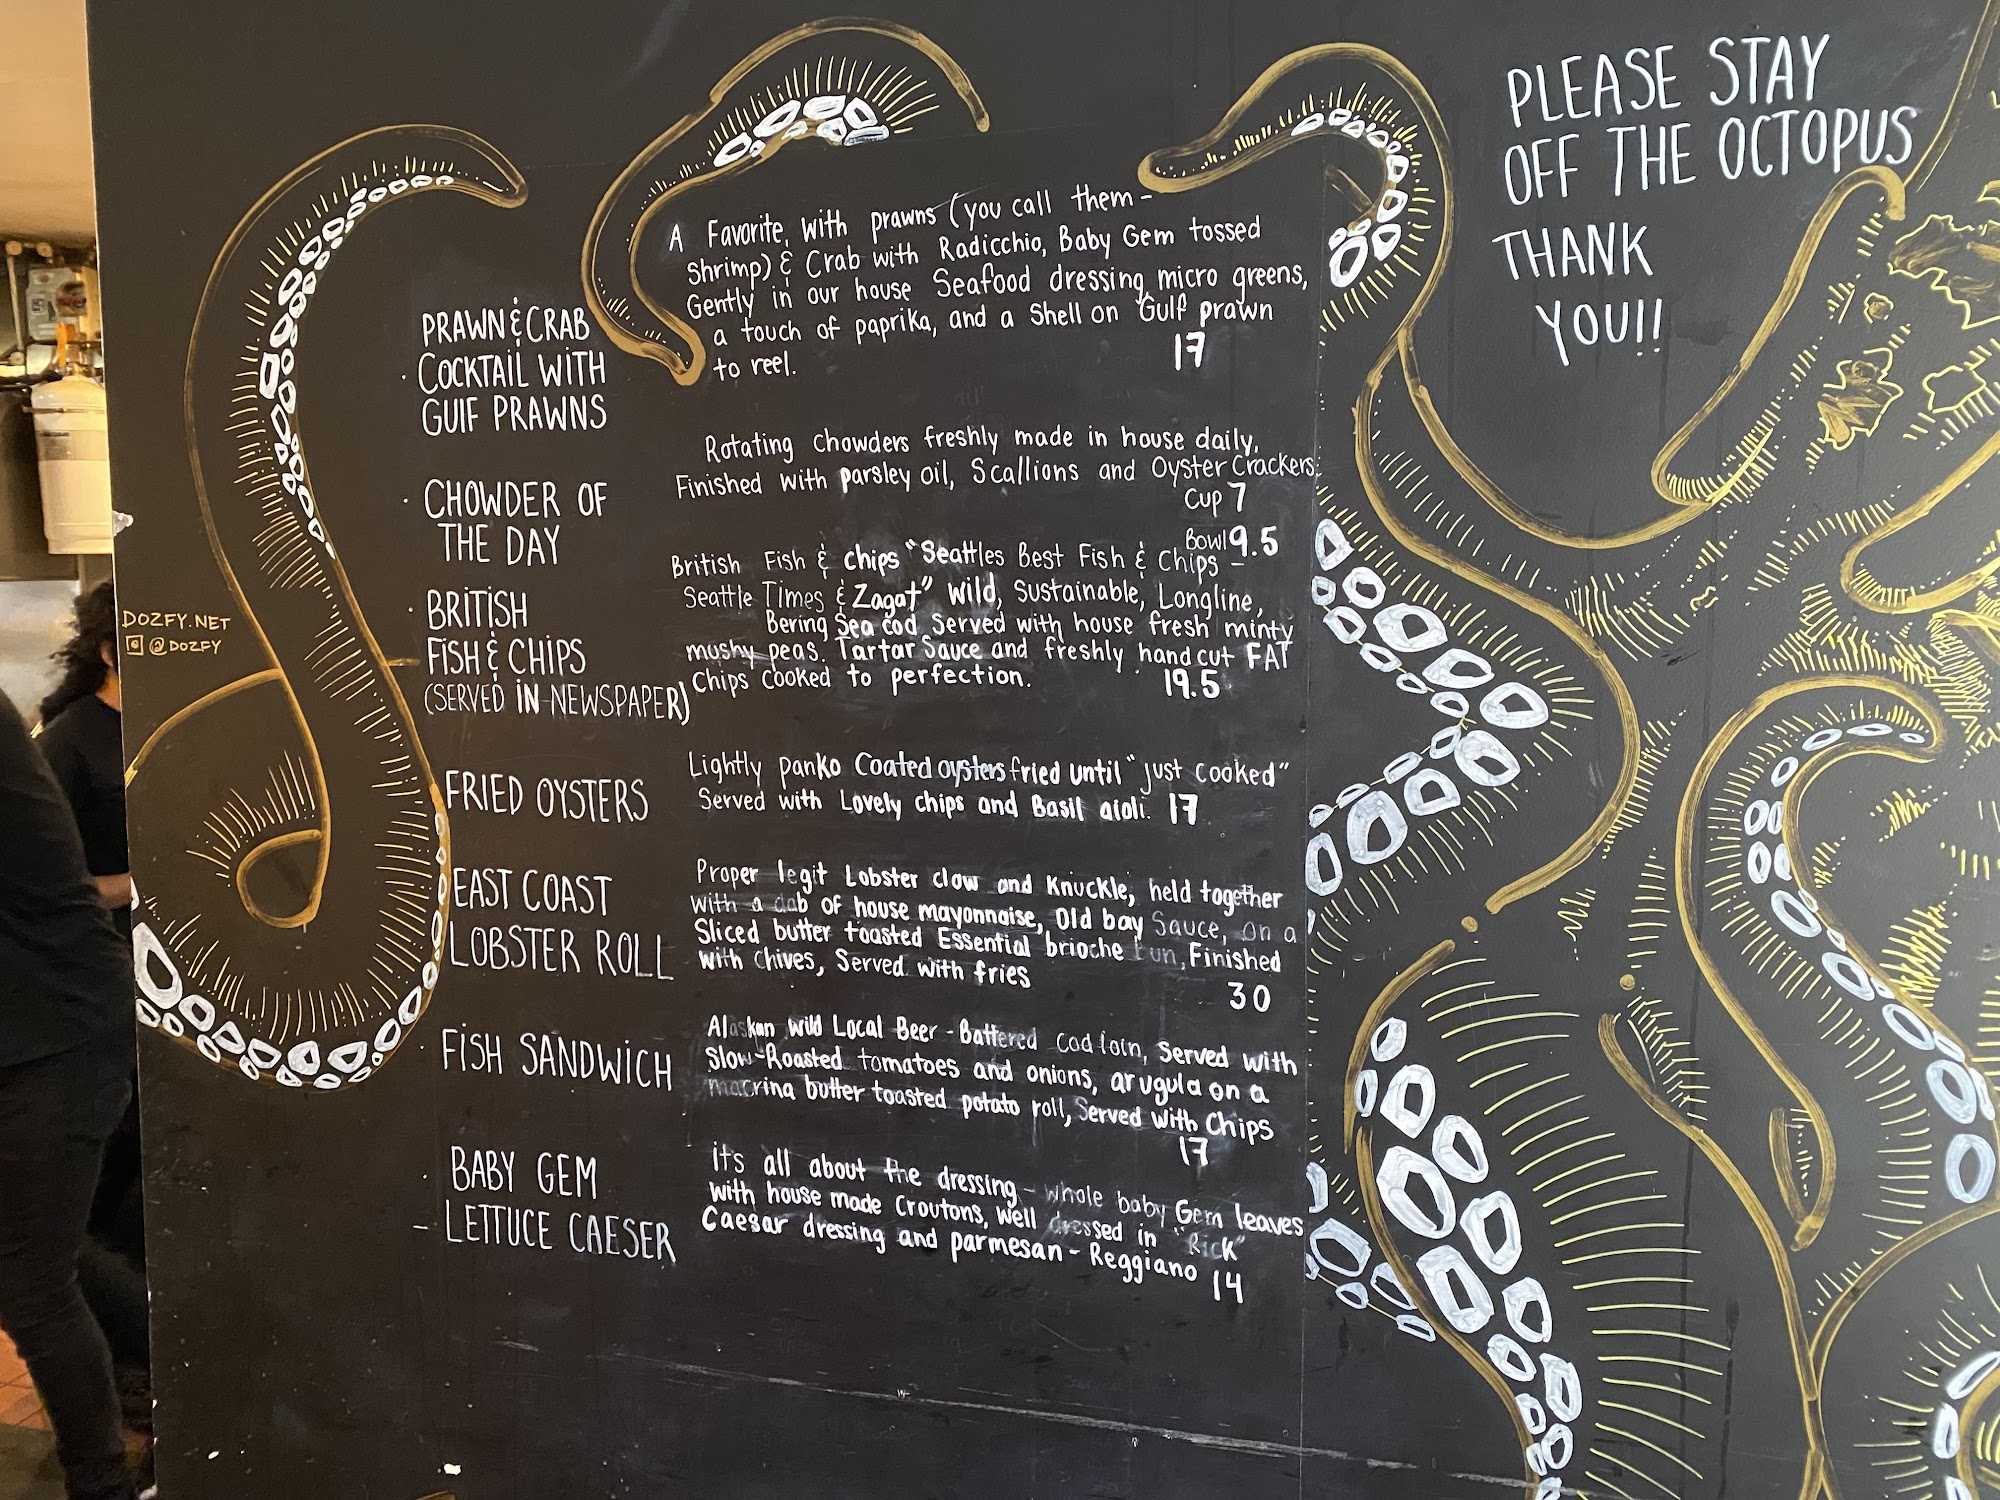 PLEASE STAY
OFF THE OCTOPUS
THANK
YOU!!
PRAWN & CRAB
COCKTAIL WITH
GUlF PRAWNS
A Favorite, with prawns (you call them -
Shrimp) & Crab with Radicchio, Baby Gem tossed
Gently in our house Seafood dressing, micro greens,
a touch of paprika, and a Shell on Gulf prawn
to reel. 17
CHOWDER OF
THE DAY
Rotating Chowders freshly made in house daily,
Finished with parsley oil, Scallions and Oyster Crackers.
Cup 7
Bowl 9.5
BRITISH
FISH & CHIPS
(SERVED IN NEWSPAPER)
British Fish & Chips "Seattles Best Fish & Chips -
Seattle Times & Zagat" Wild, Sustainable, Longline,
Bering Sea cod Served with house fresh minty
mushy peas. Tartar Sauce and freshly hand cut FAT
Chips cooked to perfection. 19.5
FRIED OYSTERS
Lightly panko Coated oysters fried until "just cooked"
Served with Lovely chips and Basil aioli. 17
EAST COAST
LOBSTER ROLL
Proper legit Lobster claw and Knuckle, held together
with a dab of house mayonnaise, Old bay Sauce, on a
Sliced butter toasted Essential brioche bun, Finished
with chives, Served with fries
30
FISH SANDWICH
Alaskan Wild Local Beer-Battered cod loin, Served with
Slow-Roasted tomatoes and onions, arugula on a
macrina butter toasted potato roll, Served With Chips
17
BABY GEM
- LETTUCE CAESER
it's all about the dressing - whole baby Gem leaves
with house made Croutons, well dressed in "Rick"
Caesar dressing and parmesan - Reggiano 14
DOZFY.NET
@DOZFY